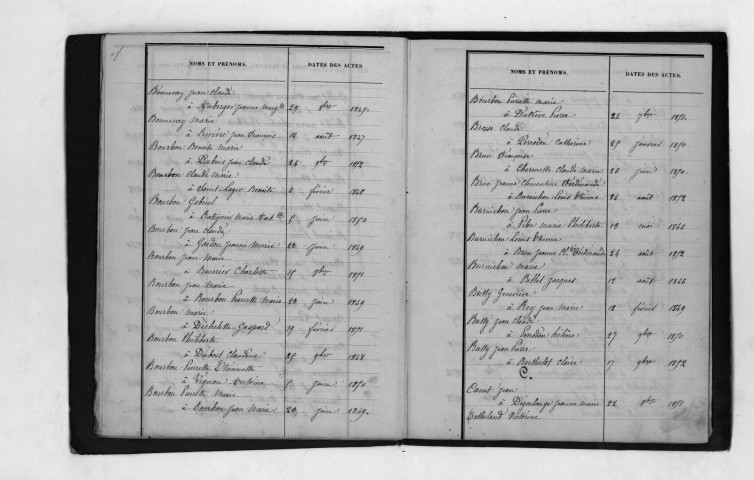 NOMS ET PRÉNOMS. DATES DES ACTES
Bonnevay jean claude
à Auberger jeanne marg.te 29 8bre 1849.
Bonnevay Marie
à Rivière jean François 16 août 1847
Bourbon Benoite Marie
à Dubuis jean claude 24 9bre 1852
Bourbon claude Marie
à Saint-Lager Benoite 6 février 1848
Bourbon Gabriel
à Marie 5 juin 1850
Bourbon jean claude
à Gardon jeanne Marie 23 juin 1849
Bourbon jean Marie
à Bourrier Charlotte 15 8bre 1851
Bourbon jean Marie
à Bourbon Pierrette Marie 23 juin 1849
Bourbon Marie
à Dechelette Gaspard 19 février 1851
Bourbon Philiberte
à Dubost Claudine 25 9bre 1848
Bourbon Pierrette
à Vignon Antoine 5 juin 1850
Bourbon Pierrette Marie
à Bourbon jean Marie 23 juin 1849.
NOMS ET PRÉNOMS. DATES DES ACTES.
Bourbon Pierrette marie
à Pierre 24 7bre 1851.
Brosse Claude
à Perradon Catherine 25 janvier 1850
Brun Françoise
à Claude Marie 26 juin 1850.
Brun jeanne Clementine Ferdinande
à Burnichon Louis Etienne 24 août 1852
Burnichon jean Pierre
à marie Philiberte 13 mai 1846
Burnichon Louis Etienne
à Brun jeanne Cl.tine Ferdinande 24 août 1852
Burnichon marie
à Billet jacques 12 août 1846
Butty Geneviève
à Rey jean Marie 12 février 1849
Butty jean claude
à Perradon hélène 27 9bre 1850
Butty jean Pierre
à Berthelot claire 17 9bre 1852
C.
Canet jean
à Degoulange jeanne marie 22 8bre 1851
Catheland Victorine